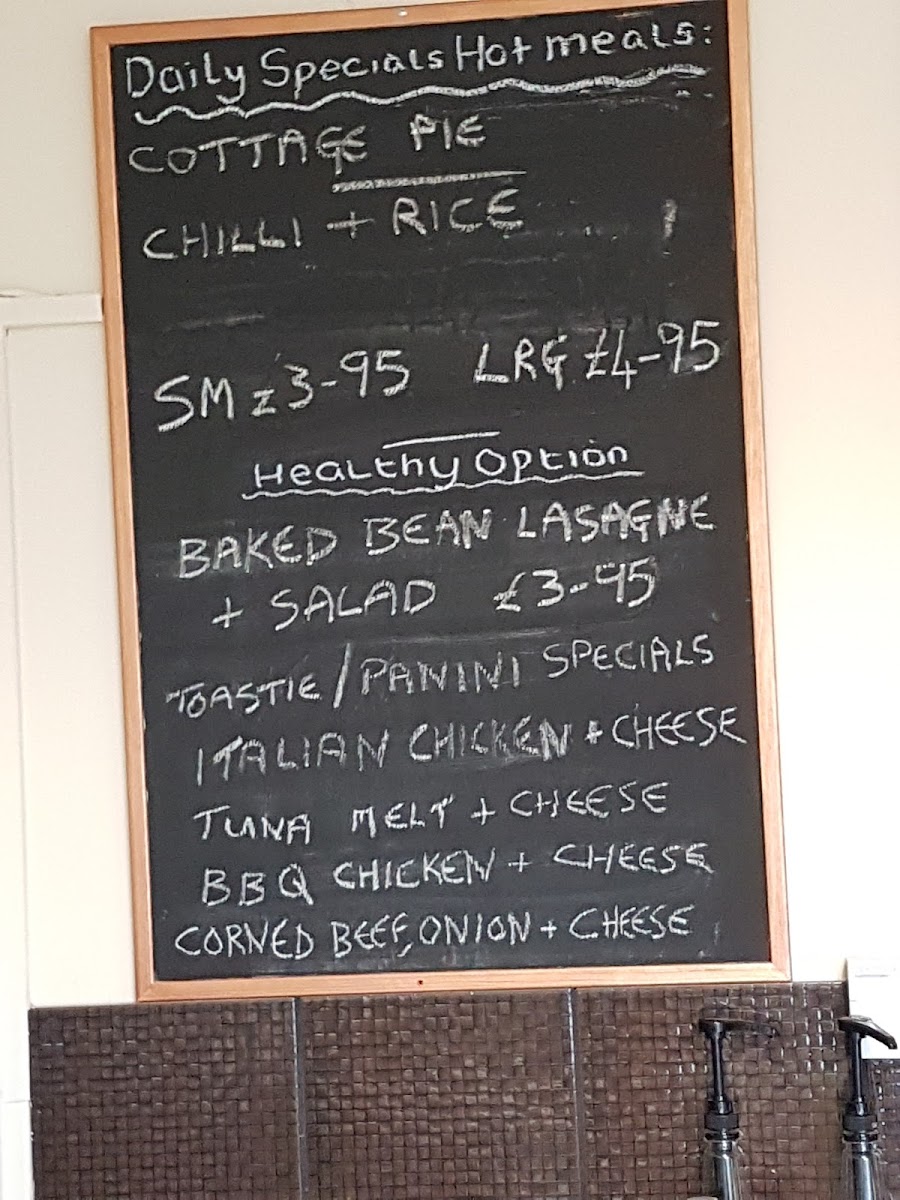 Daily Specials Hot meals:
COTTAGE PIE
CHILLI + RICE
SM £3-95 LRG £4-95
Healthy Option
BAKED BEAN LASAGNE
+ SALAD £3-95
TOASTIE/PANINI SPECIALS
ITALIAN CHICKEN + CHEESE
TUNA MELT + CHEESE
BBQ CHICKEN + CHEESE
CORNED BEEF, ONION + CHEESE